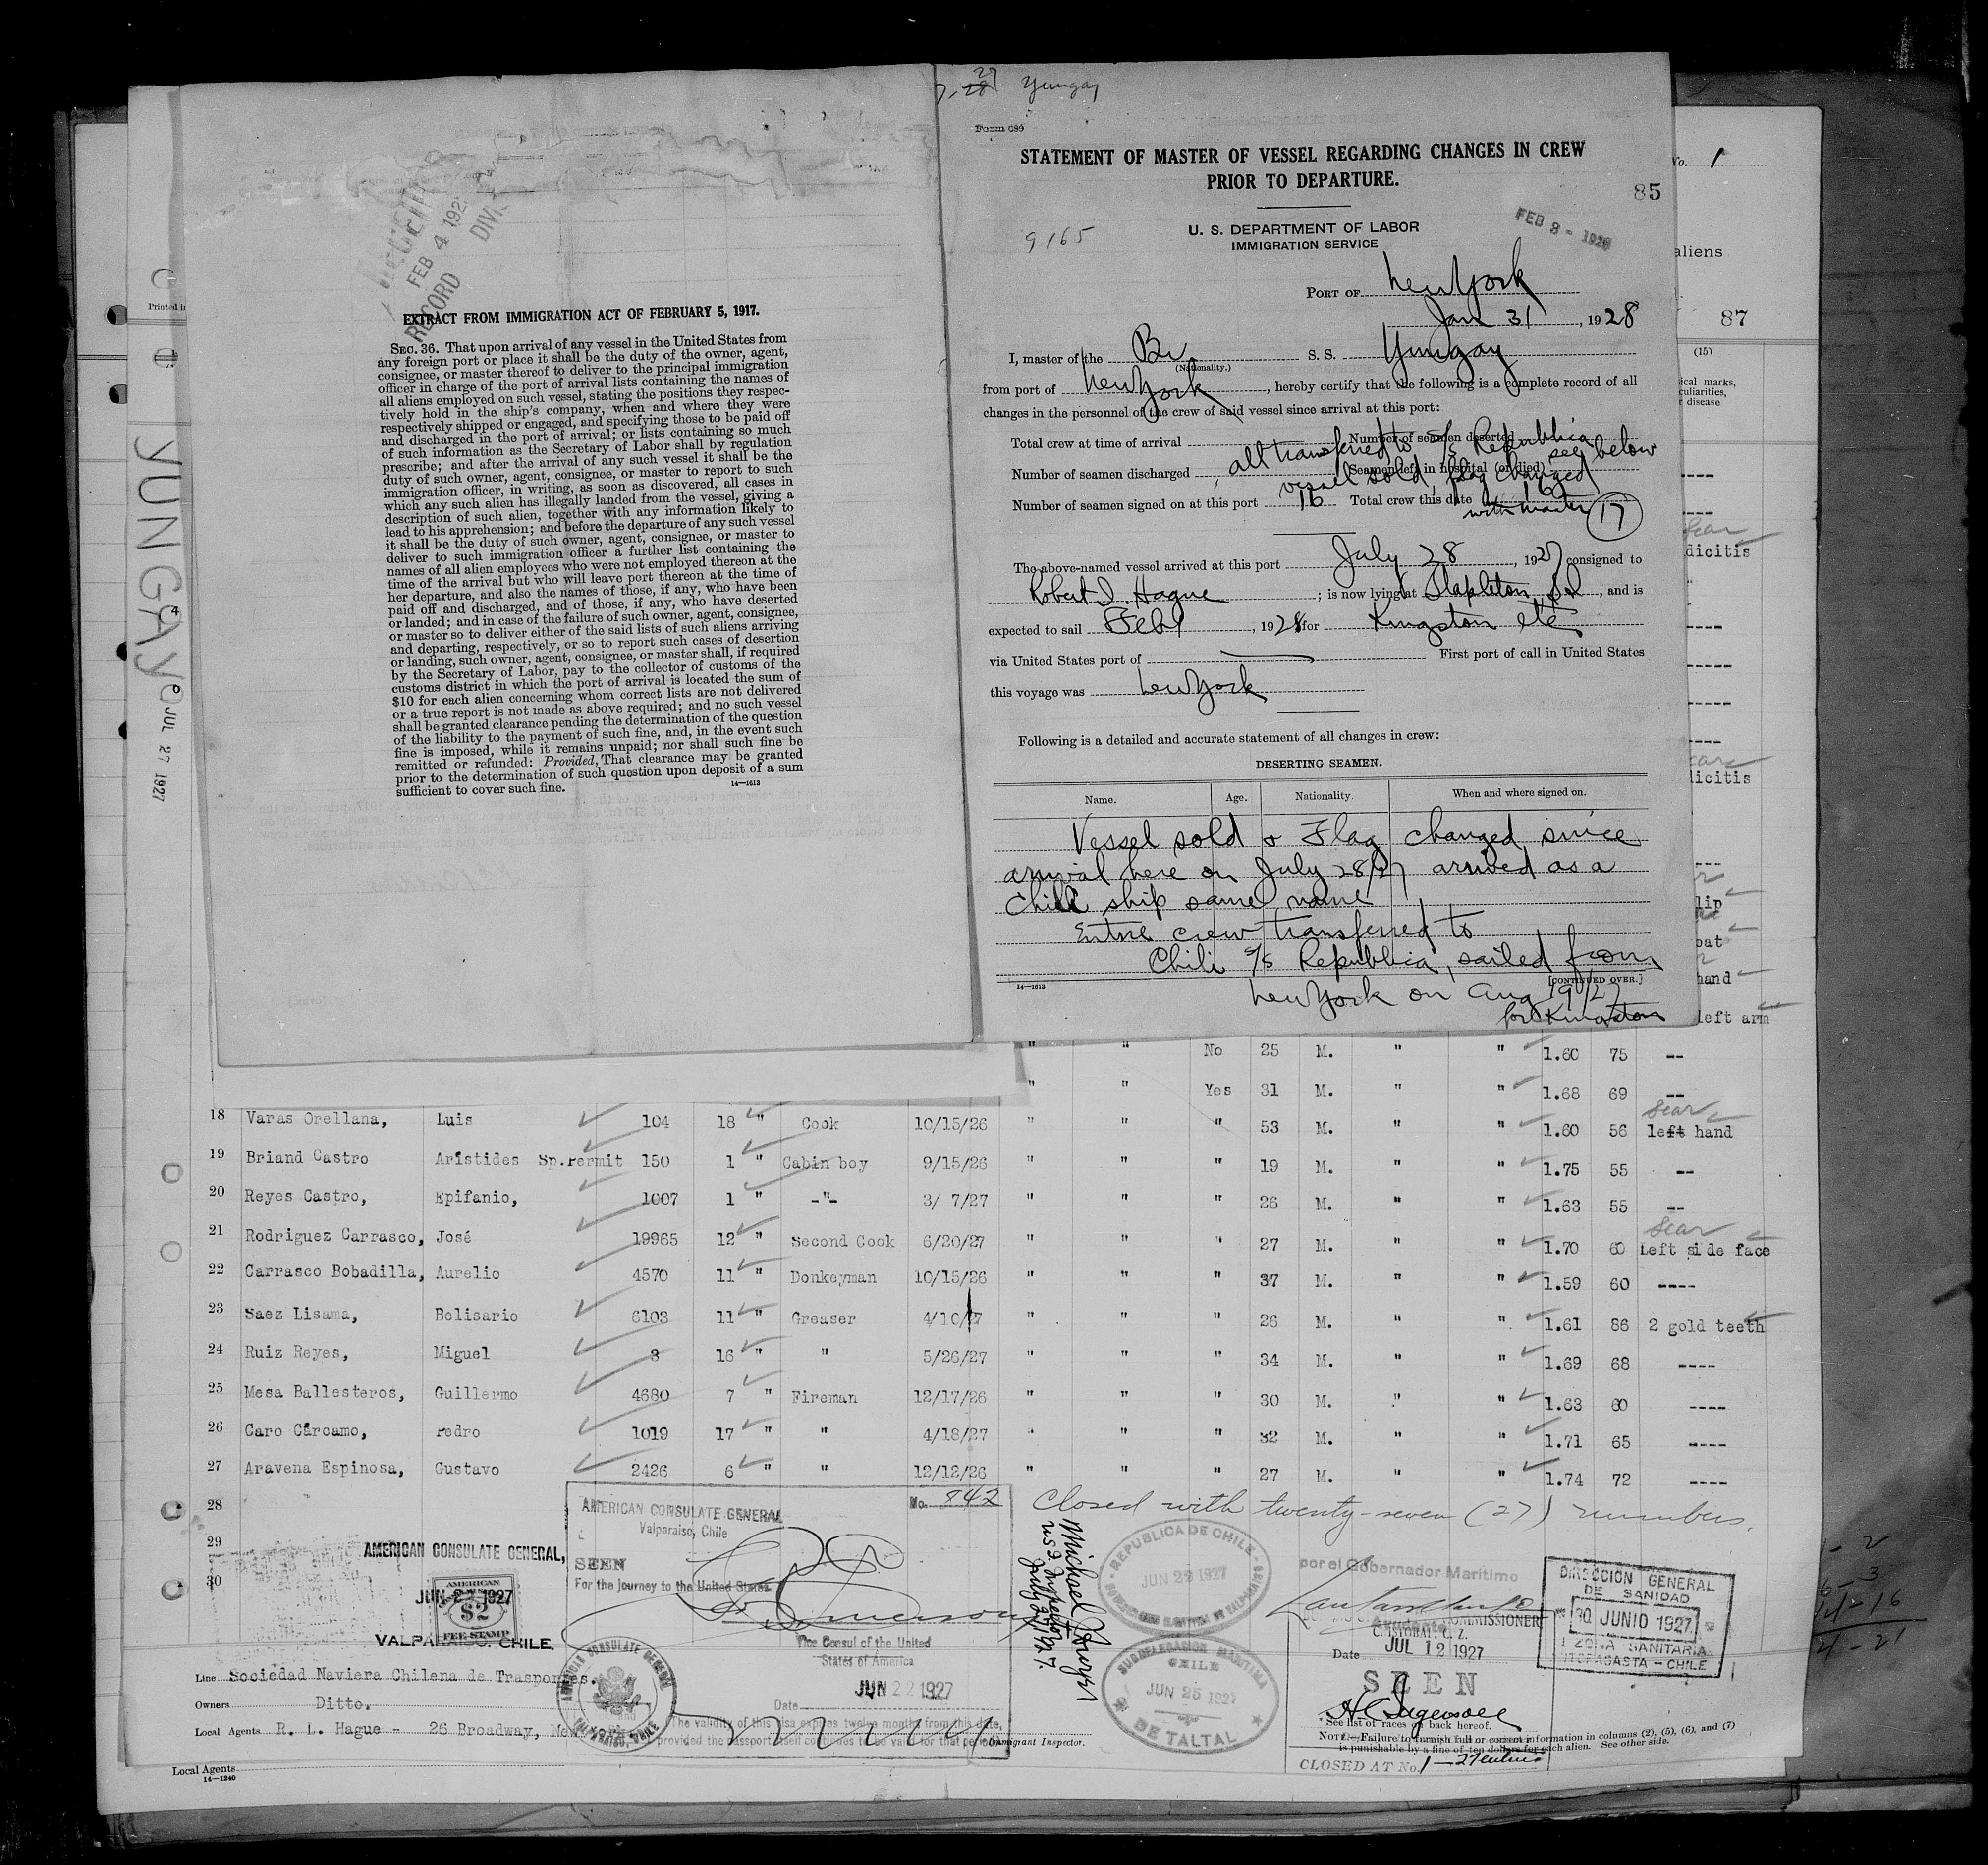 27
7-28 Yungay
Form 689
STATEMENT OF MASTER OF VESSEL REGARDING CHANGES IN CREW
PRIOR TO DEPARTURE.
85
9165
U. S. DEPARTMENT OF LABOR
IMMIGRATION SERVICE
FEB 8 - 1928
PORT OF New York
Jan 31, 1928
I, master of the Br. S. S. Yungay
(Nationality.)
from port of New York, hereby certify that the following is a complete record of all
changes in the personnel of the crew of said vessel since arrival at this port:
Total crew at time of arrival Number of seamen deserted
all transferred to S/S Republica see below
Number of seamen discharged Seamen left in hospital (or died)
vessel sold, flag changed
Number of seamen signed on at this port 16 Total crew this date 16
with master 17
The above-named vessel arrived at this port July 28, 1927 consigned to
Robert I. Hague; is now lying at Stapleton S I, and is
expected to sail Feb 1, 1928 for Kingston etc
via United States port of First port of call in United States
this voyage was New York
Following is a detailed and accurate statement of all changes in crew:
DESERTING SEAMEN.
Name. Age. Nationality. When and where signed on.
Vessel sold & Flag changed since
arrival here on July 28/27 arrived as a
Chili ship same name
Entire crew transferred to
Chili S/S Republica, sailed from
14—1613 [CONTINUED OVER.]
New York on Aug 19/27
for Kingston
FEB 4 192
RECORD DIVI
EXTRACT FROM IMMIGRATION ACT OF FEBRUARY 5, 1917.
SEC. 36. That upon arrival of any vessel in the United States from
any foreign port or place it shall be the duty of the owner, agent,
consignee, or master thereof to deliver to the principal immigration
officer in charge of the port of arrival lists containing the names of
all aliens employed on such vessel, stating the positions they respec-
tively hold in the ship's company, when and where they were
respectively shipped or engaged, and specifying those to be paid off
and discharged in the port of arrival; or lists containing so much
of such information as the Secretary of Labor shall by regulation
prescribe; and after the arrival of any such vessel it shall be the
duty of such owner, agent, consignee, or master to report to such
immigration officer, in writing, as soon as discovered, all cases in
which any such alien has illegally landed from the vessel, giving a
description of such alien, together with any information likely to
lead to his apprehension; and before the departure of any such vessel
it shall be the duty of such owner, agent, consignee, or master to
deliver to such immigration officer a further list containing the
names of all alien employees who were not employed thereon at the
time of the arrival but who will leave port thereon at the time of
her departure, and also the names of those, if any, who have been
paid off and discharged, and of those, if any, who have deserted
or landed; and in case of the failure of such owner, agent, consignee,
or master so to deliver either of the said lists of such aliens arriving
and departing, respectively, or so to report such cases of desertion
or landing, such owner, agent, consignee, or master shall, if required
by the Secretary of Labor, pay to the collector of customs of the
customs district in which the port of arrival is located the sum of
$10 for each alien concerning whom correct lists are not delivered
or a true report is not made as above required; and no such vessel
shall be granted clearance pending the determination of the question
of the liability to the payment of such fine, and, in the event such
fine is imposed, while it remains unpaid; nor shall such fine be
remitted or refunded: Provided, That clearance may be granted
prior to the determination of such question upon deposit of a sum
sufficient to cover such fine.
14—1613
Printed i
YUNGAY
JUL 27 1927
No. 1
aliens
87
(15)
ical marks,
culiarities,
r disease
----
----
Scar
dicitis
----
----
----
----
Scar
dicitis
---
lip
oat
hand
left arm
" " No 25 M. " " 1.60 75 --
" " Yes 31 M. " " 1.68 69 --
18 Varas Orellana, Luis 104 18 " Cook 10/15/26 " " " 53 M. " " 1.60 56 Scar left hand
19 Briand Castro Arístides Sp.Permit 150 1 " Cabin boy 9/15/26 " " " 19 M. " " 1.75 55 --
20 Reyes Castro, Epifanio, 1007 1 " -"- 3/ 7/27 " " " 26 M. " " 1.63 55 --
21 Rodriguez Carrasco, José 19965 12 " Second Cook 6/20/27 " " " 27 M. " " 1.70 60 Scar Left side face
22 Carrasco Bobadilla, Aurelio 4570 11 " Donkeyman 10/15/26 " " " 37 M. " " 1.59 60 ----
23 Saez Lisama, Belisario 6103 11 " Greaser 4/10/27 " " " 26 M. " " 1.61 86 2 gold teeth
24 Ruiz Reyes, Miguel 3 16 " " 5/26/27 " " " 34 M. " " 1.69 68 ----
25 Mesa Ballesteros, Guillermo 4680 7 " Fireman 12/17/26 " " " 30 M. " " 1.63 60 ----
26 Caro Cárcamo, Pedro 1019 17 " " 4/18/27 " " " 32 M. " " 1.71 65 ----
27 Aravena Espinosa, Gustavo 2426 6 " " 12/12/26 " " " 27 M. " " 1.74 72 ----
28
29
30
Closed with twenty-seven (27) numbers.
AMERICAN CONSULATE GENERAL,
JUN 22 1927
VALPARAISO, CHILE
AMERICAN
$2
FEE STAMP
AMERICAN CONSULATE GENERAL No. 842
Valparaiso, Chile
SEEN
For the journey to the United States
Vice Consul of the United
States of America
Date JUN 22 1927
The validity of this visa expires twelve months from this date,
provided the passport itself continues to be valid for that period.
AMERICAN CONSULATE GENERAL
VALPARAISO, CHILE
Michael
U S Inspector
July 27 1927.
REPUBLICA DE CHILE
JUN 22 1927
SUBDELEGACION MARITIMA
CHILE
JUN 25 1927
DE TALTAL
por el Gobernador Marítimo
COMMISSIONER
CRISTOBAL, C. Z.
Date JUL 12 1927
SEEN
DIRECCION GENERAL
DE SANIDAD
30 JUNIO 1927
I ZONA SANITARIA
ANTOFAGASTA - CHILE
Line Sociedad Naviera Chilena de Trasportes.
Owners Ditto.
Local Agents R. L. Hague - 26 Broadway, New York
Immigrant Inspector.
*See list of races on back hereof.
NOTE.—Failure to furnish full or correct information in columns (2), (5), (6), and (7)
is punishable by a fine of ten dollars for each alien. See other side.
CLOSED AT No. 1—27
Local Agents
14—1240